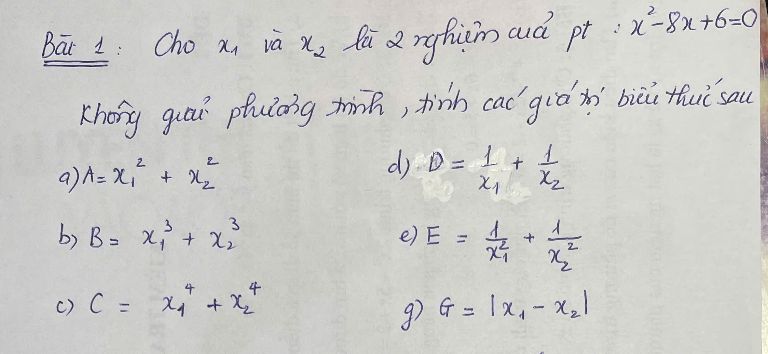 Bài 1: Cho x₁ và x₂ là 2 nghiệm của pt : x²-8x+6=0
Không giải phương trình, tính các giá trị biểu thức sau
a) A = x₁² + x₂²
d) D = 1/x₁ + 1/x₂
b) B = x₁³ + x₂³
e) E = 1/x₁² + 1/x₂²
c) C = x₁⁴ + x₂⁴
g) G = |x₁ - x₂|